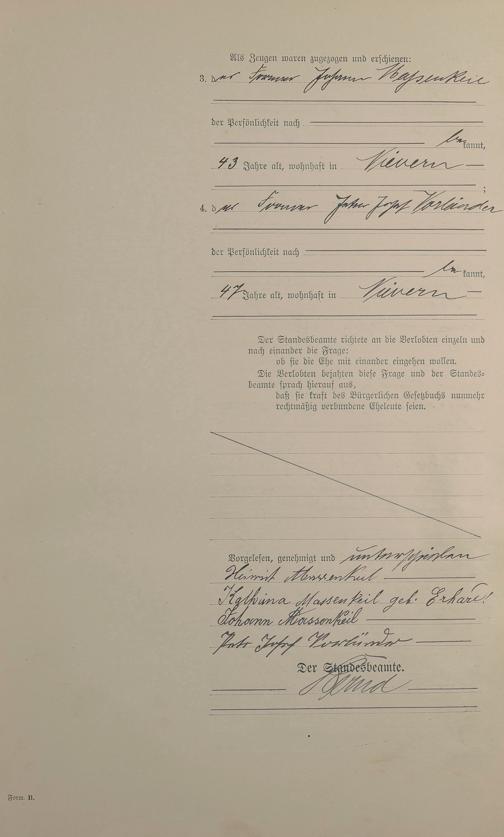 Als Zeugen waren zugezogen und erschienen:
3. der Former Johann Massenkeil
der Persönlichkeit nach
bekannt,
43 Jahre alt, wohnhaft in Nievern
;
4. der Former Peter Josef Vorländer
der Persönlichkeit nach
bekannt,
47 Jahre alt, wohnhaft in Nievern
Der Standesbeamte richtete an die Verlobten einzeln und
nach einander die Frage:
ob sie die Ehe mit einander eingehen wollen.
Die Verlobten bejahten diese Frage und der Standes-
beamte sprach hierauf aus,
daß sie kraft des Bürgerlichen Gesetzbuchs nunmehr
rechtmäßig verbundene Eheleute seien.
Vorgelesen, genehmigt und unterschrieben
Massenkeil
Katharina Massenkeil geb. Erhard
Johann Massenkeil
Peter Josef Vorländer
Der Standesbeamte.
Form. B.